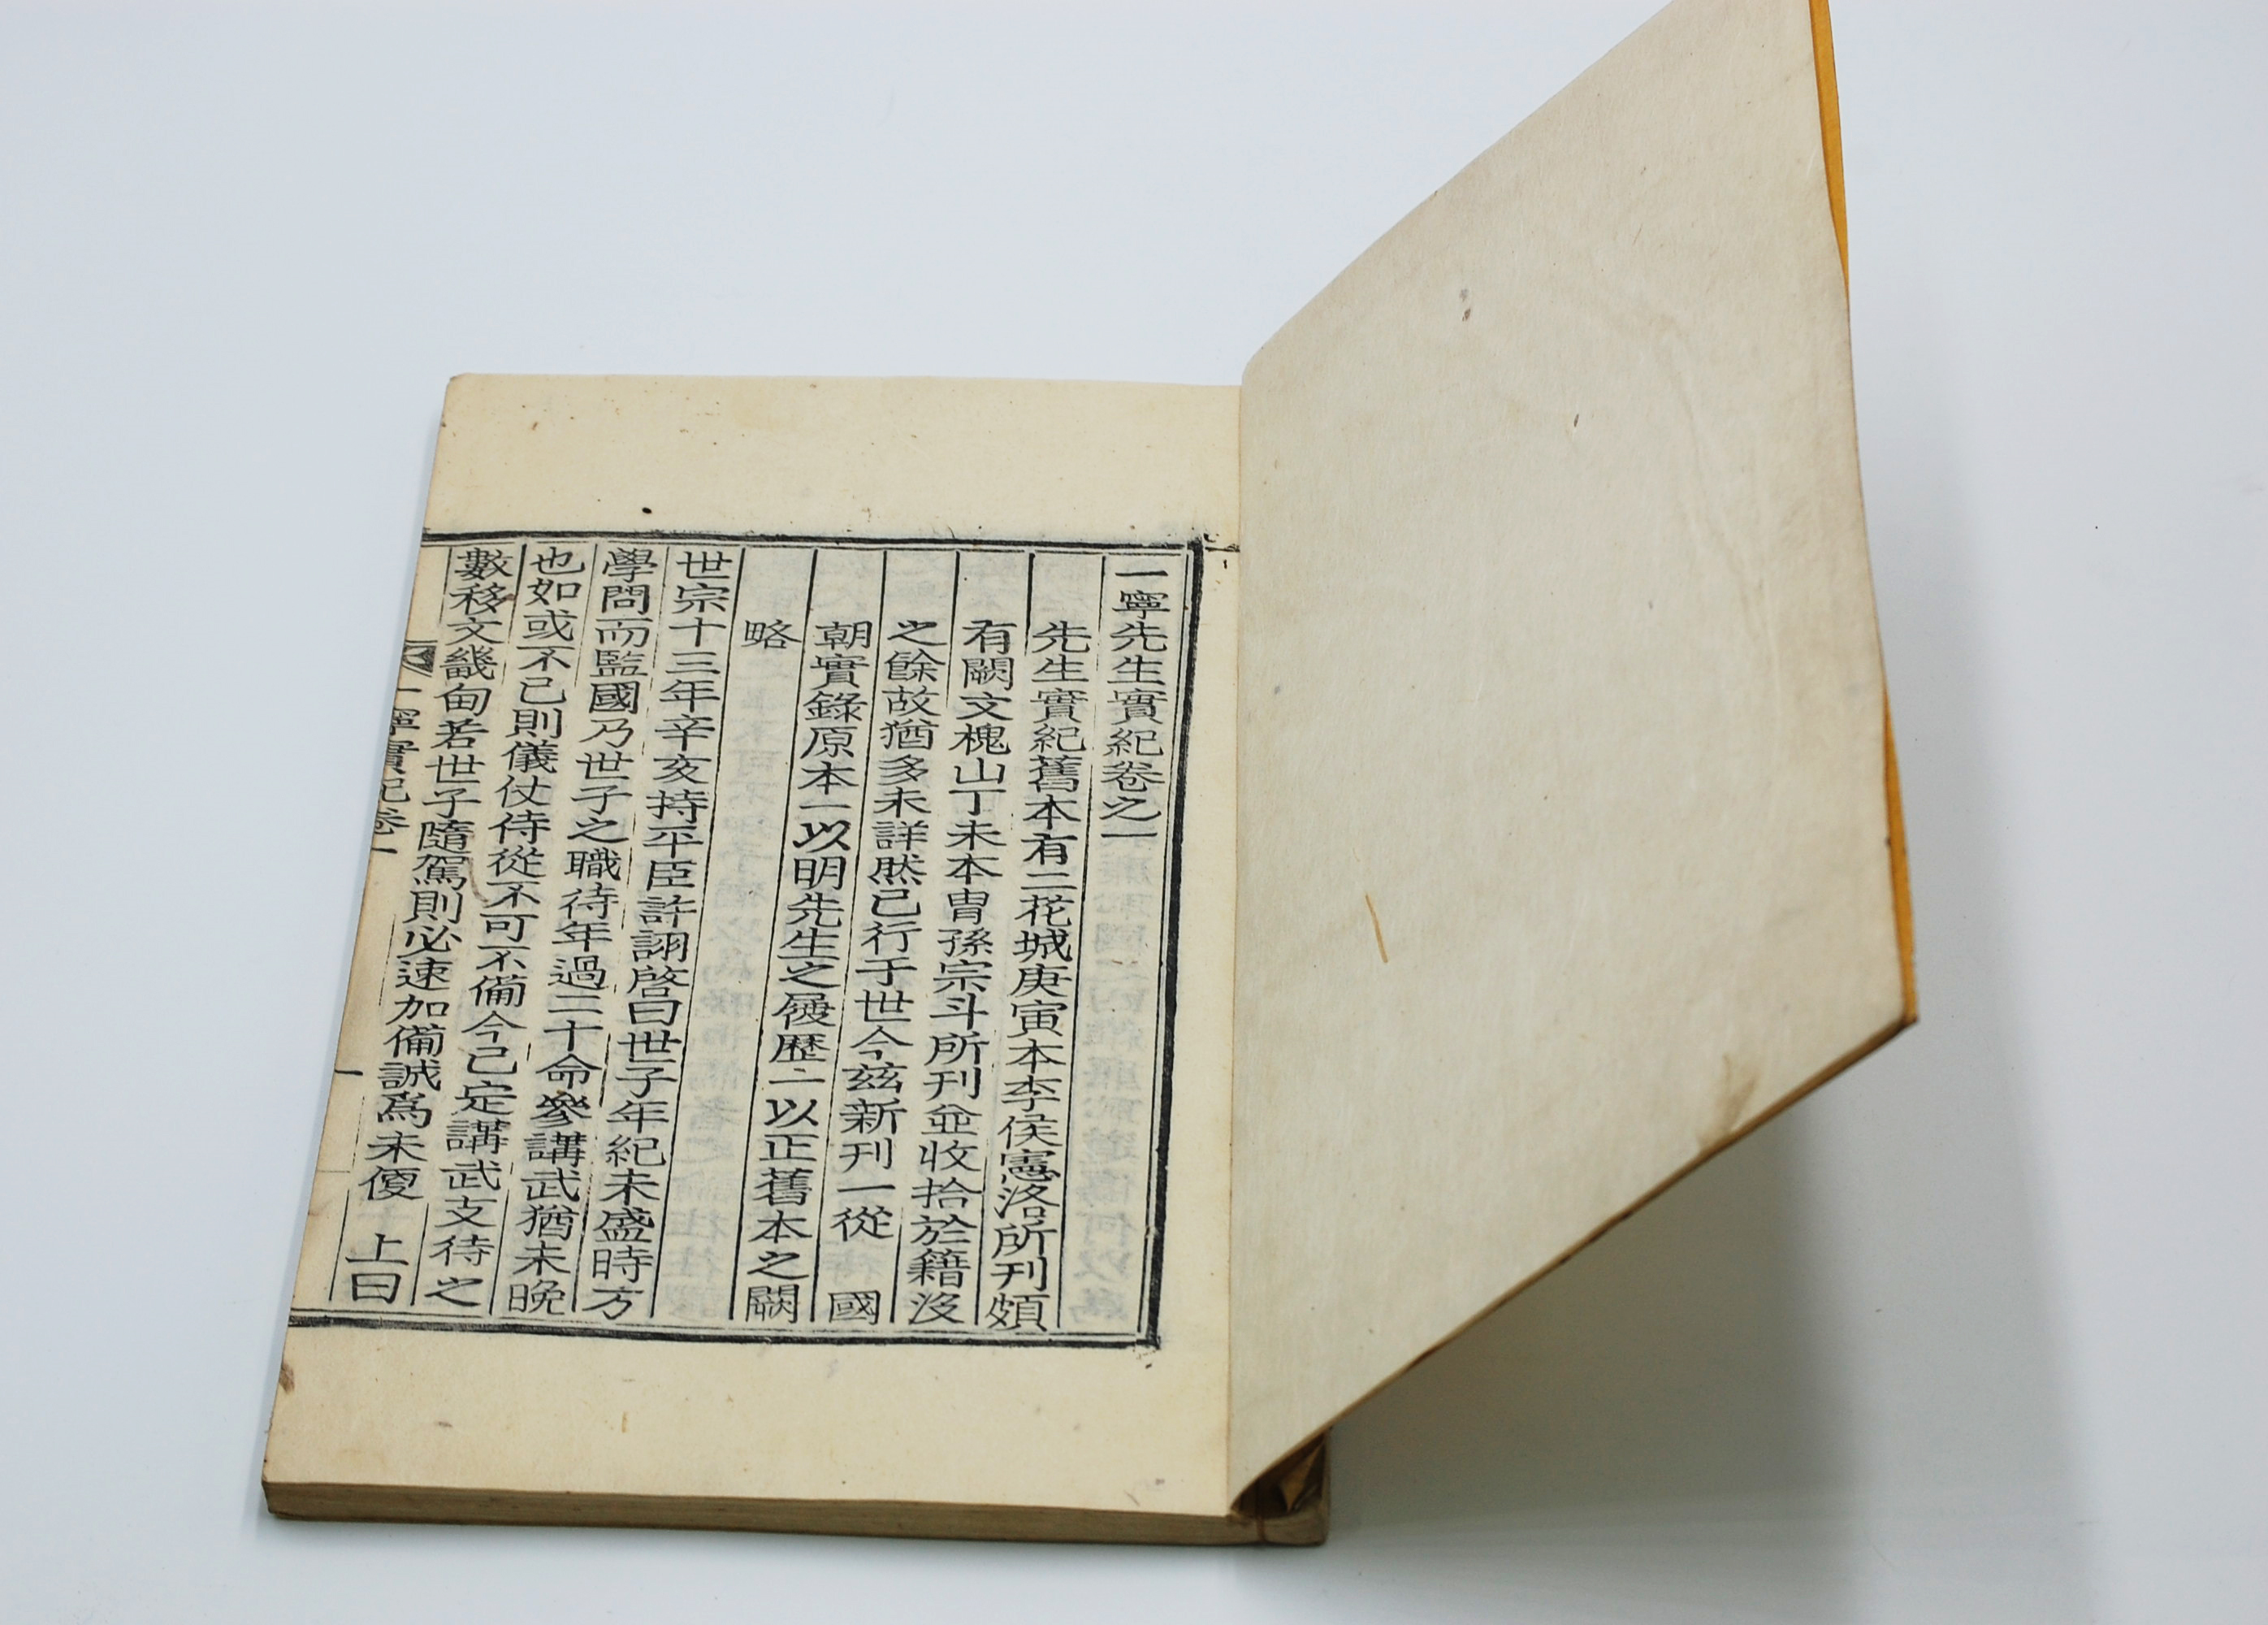 一寧先生實紀卷之一
先生實紀舊本有二花城庚寅本李侯憲洛所刊頗
有闕文槐山丁未本胄孫宗斗所刊並收拾於籍沒
之餘故猶多未詳然已行于世今玆新刊一從 國
朝實錄原本一以明先生之履歷二以正舊本之闕
略
世宗十三年辛亥持平臣許詡啓曰世子年紀未盛時方
學問而監國乃世子之職待年過二十命參講武猶未晩
也如或不已則儀仗侍從不可不備今已定講武支待之
數移文畿甸若世子隨駕則必速加備誠爲未便 上曰
一寧實紀卷一
一